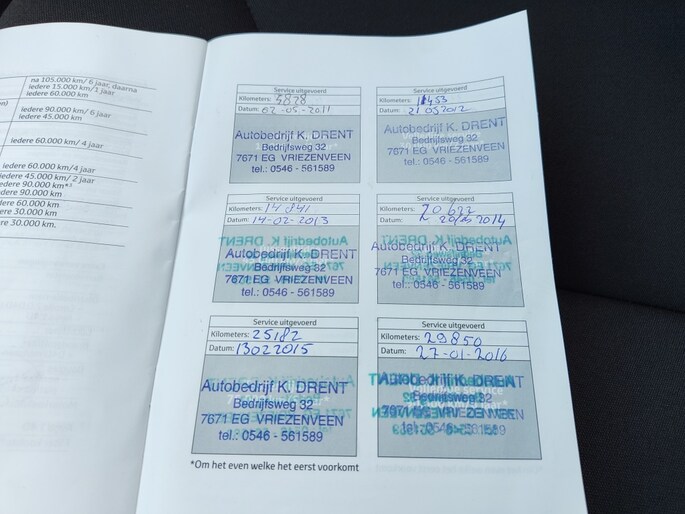 na 105.000 km/ 6 jaar, daarna
iedere 15.000 km/1 jaar
iedere 60.000 km
iedere 90.000 km/ 6 jaar
iedere 45.000 km
iedere 60.000 km/ 4 jaar
iedere 60.000 km/4 jaar
iedere 45.000 km/ 2 jaar
iedere 90.000 km*³
iedere 90.000 km
ere 60.000 km
ere 30.000 km.
re 30.000 km.
Service uitgevoerd
Kilometers: 3828
Datum: 02-05-2011
Autobedrijf K. DRENT
Bedrijfsweg 32
7671 EG VRIEZENVEEN
tel.: 0546 - 561589
Service uitgevoerd
Kilometers: 11453
Datum: 21 03 2012
Autobedrijf K. DRENT
Bedrijfsweg 32
7671 EG VRIEZENVEEN
tel.: 0546 - 561589
Service uitgevoerd
Kilometers: 14 841
Datum: 14-02-2013
Autobedrijf K. DRENT
Bedrijfsweg 32
7671 EG VRIEZENVEEN
tel.: 0546 - 561589
Service uitgevoerd
Kilometers: 20622
Datum: 2014
Autobedrijf K. DRENT
Bedrijfsweg 32
7671 EG VRIEZENVEEN
tel.: 0546 - 561589
Service uitgevoerd
Kilometers: 25182
Datum: 13022015
Autobedrijf K. DRENT
Bedrijfsweg 32
7671 EG VRIEZENVEEN
tel.: 0546 - 561589
Service uitgevoerd
Kilometers: 29850
Datum: 27-01-2016
Autobedrijf K. DRENT
Bedrijfsweg 32
7671 EG VRIEZENVEEN
tel.: 0546 - 561589
*Om het even welke het eerst voorkomt